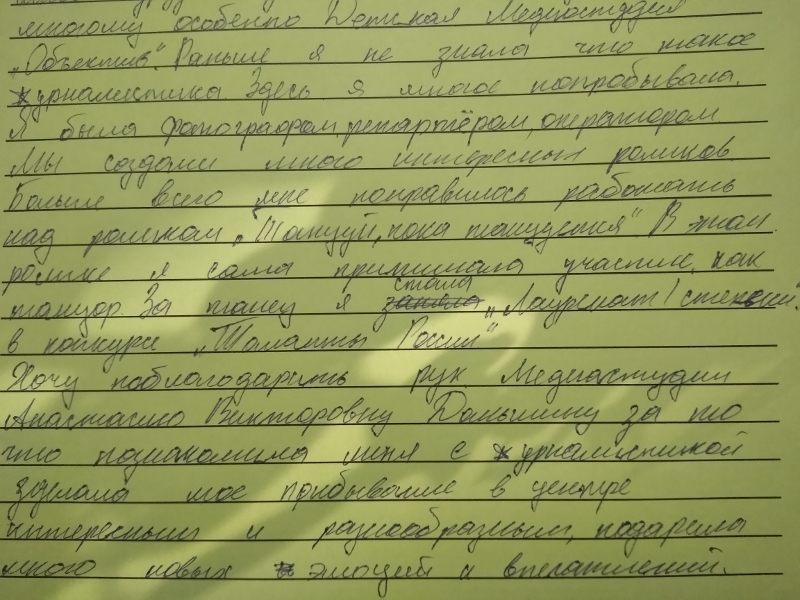 многому особенно Детская Медиастудия
„Объектив". Раньше я не знала что такое
журналистика. Здесь я многое попробывала.
Я была фотографом, репартёром, оператором
Мы создали много интересных роликов.
Больше всего мне понравилось работать
над роликом „Танцуй, пока танцуется" В этом
ролике я сама принимала участие, как
танцор. За танец я заняла стала „Лауреат I степени".
в конкурсе „Таланты России"
Хочу поблагодарить рук. Медиастудии
Анастасию Викторовну Даньшину за то
что познакомила меня с журналистикой
зделала мое прибывание в центре
интересным и разнообразным, подарила
много новых эмоций и впечатлений.